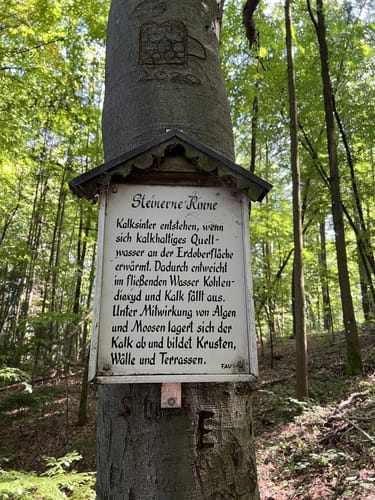 2020
Steinerne Rinne
Kalksinter entstehen, wenn
sich kalkhaltiges Quell-
wasser an der Erdoberfläche
erwärmt. Dadurch entweicht
im fließenden Wasser Kohlen-
dioxyd und Kalk fällt aus.
Unter Mitwirkung von Algen
und Moosen lagert sich der
Kalk ab und bildet Krusten,
Wälle und Terrassen.
FAV
E